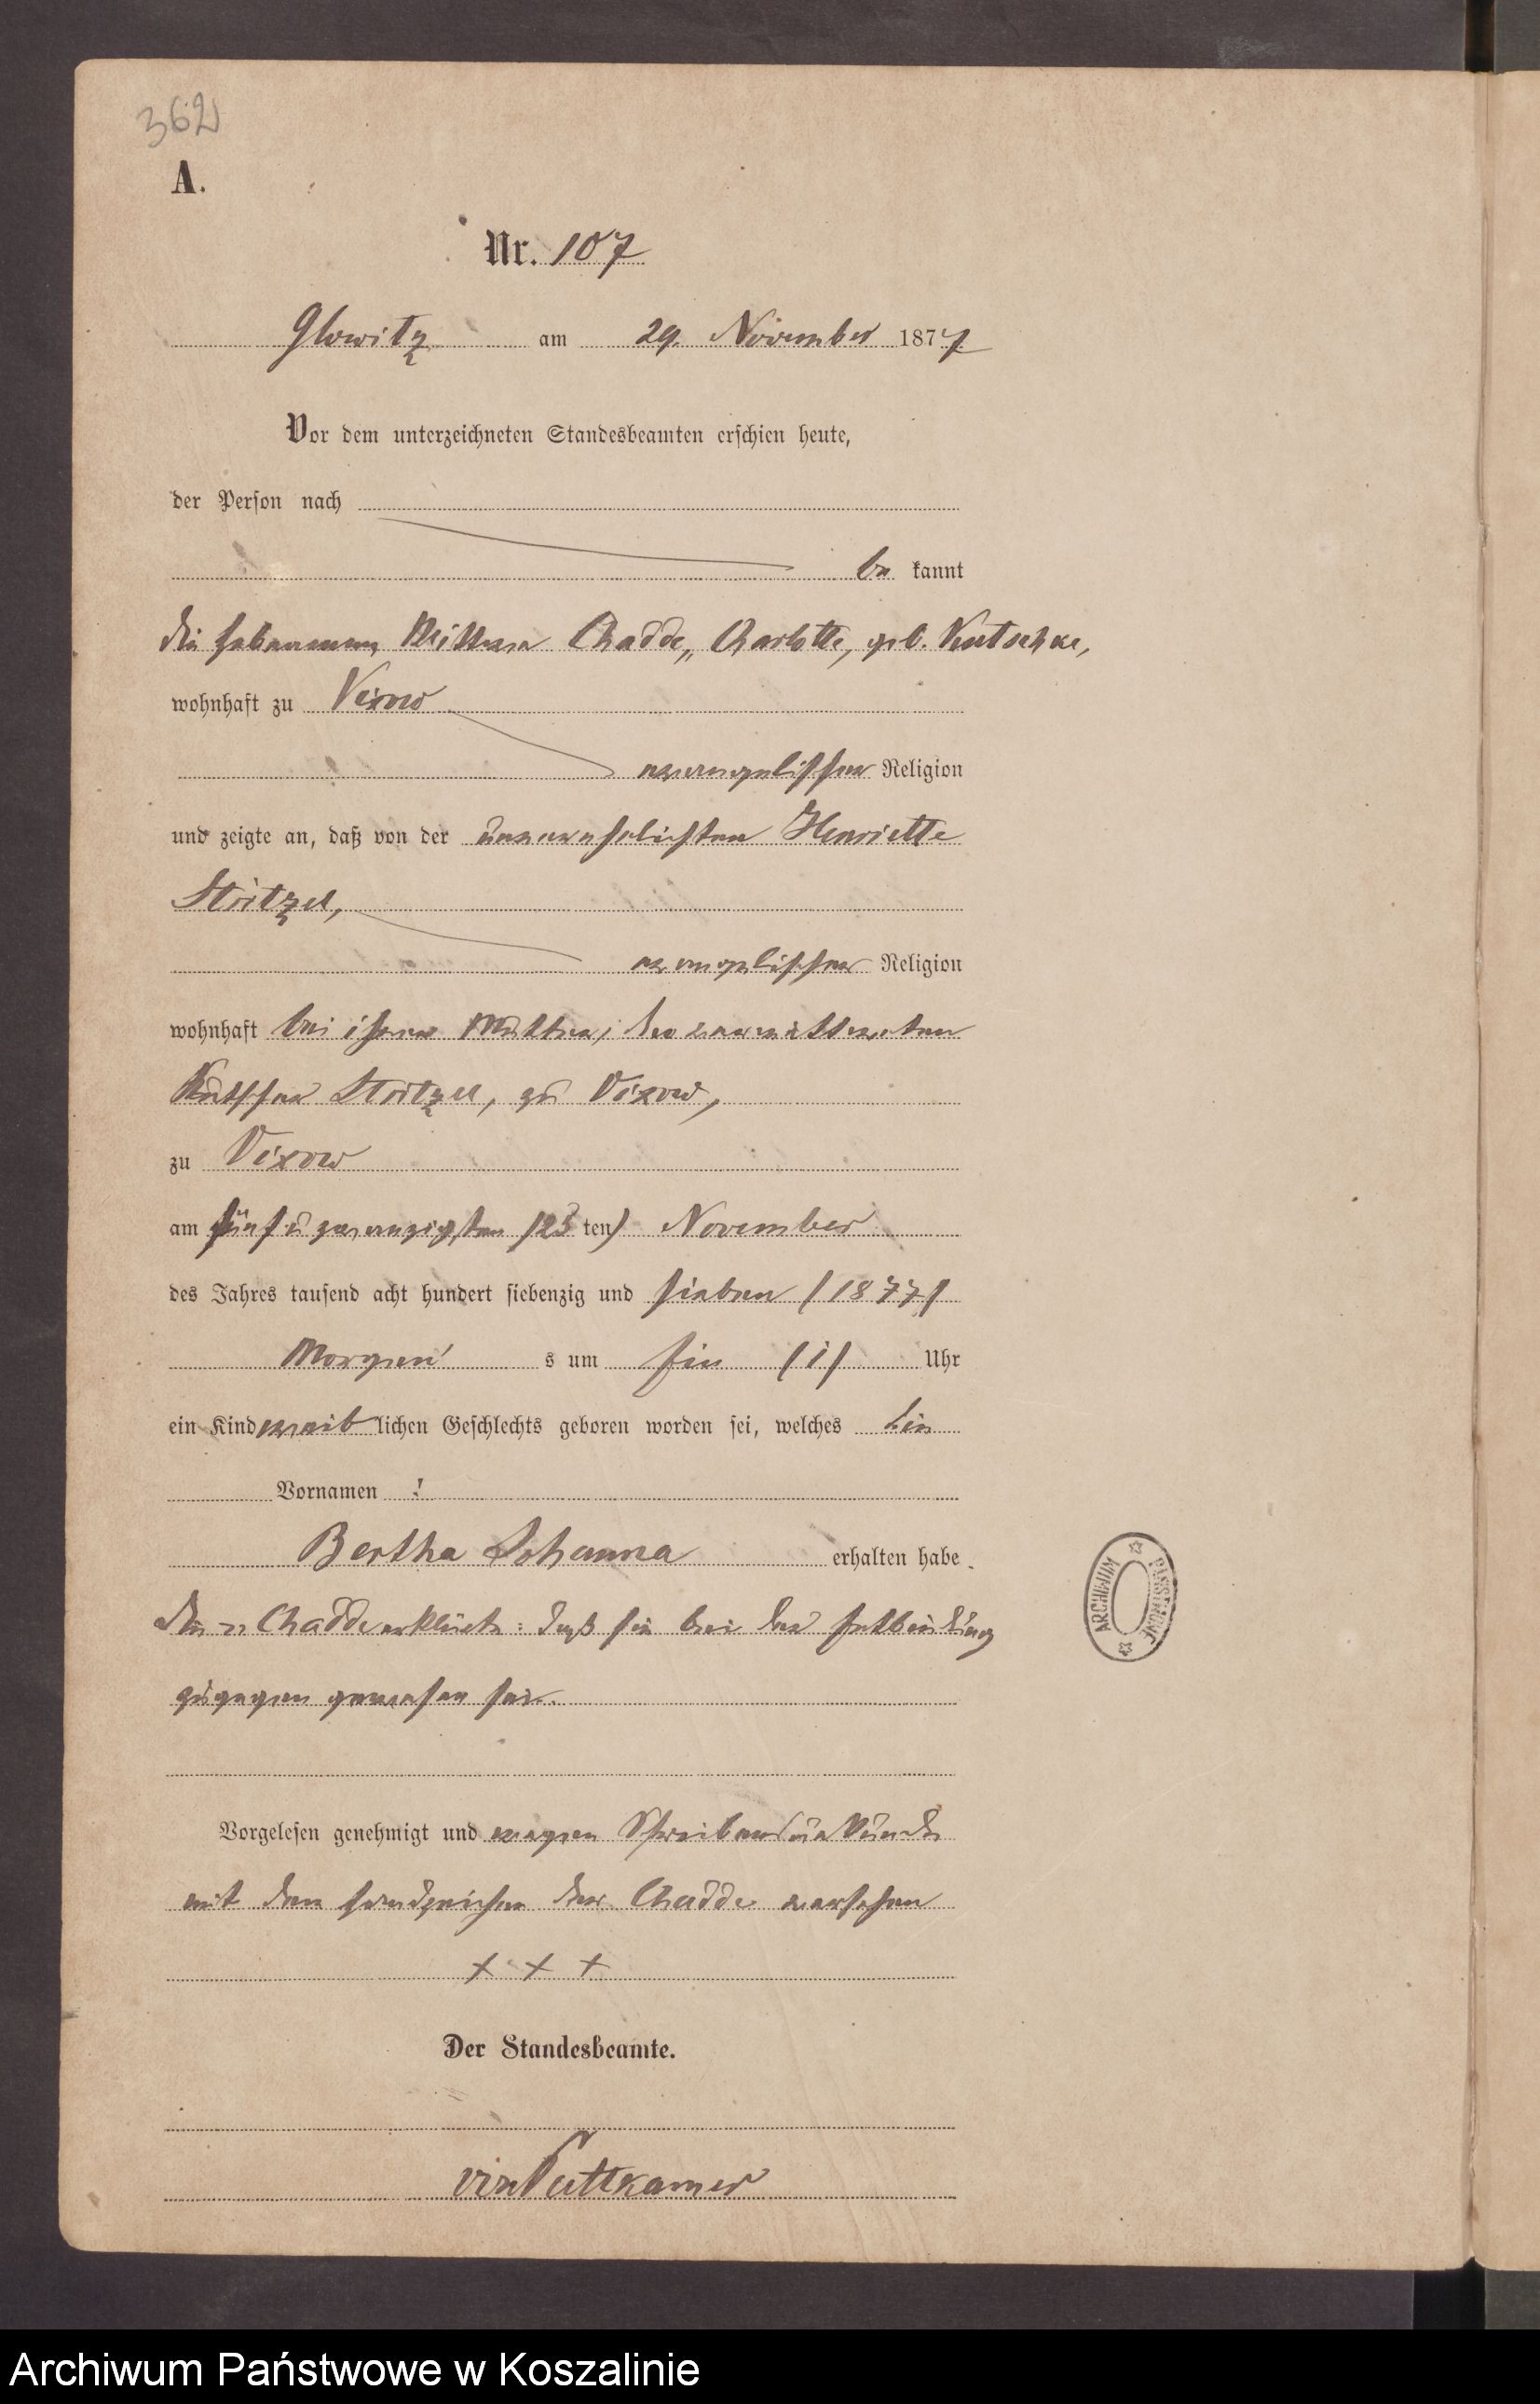 362
A.
Nr. 107
Glowitz am 29. November 1877
Vor dem unterzeichneten Standesbeamten erschien heute,
der Person nach
be kannt
die Hebamme Wittwe Chadde, Charlotte, geb. Kutschke,
wohnhaft zu Vixow
evangelischer Religion
und zeigte an, daß von der unverehelichten Henriette
Stoitzel,
evangelischer Religion
wohnhaft bei ihrer Mutter, der verwittweten
Kutscher Stoitzel, zu Vixow,
zu Vixow
am fünf u zwanzigsten /25 ten/ November
des Jahres tausend acht hundert siebenzig und sieben /1877/
Morgen s um Ein /1/ Uhr
ein Kind weib lichen Geschlechts geboren worden sei, welches die
Vornamen :
Bertha Johanna erhalten habe.
Die Chadde erklärte: daß sie bei der Entbindung
zugegen gewesen sei.
Vorgelesen genehmigt und wegen Schreibensunkunde
mit dem Handzeichen der Chadde versehen
+ + +
Der Standesbeamte.
von Puttkamer
ARCHIWUM PAŃSTWOWE
Archiwum Państwowe w Koszalinie